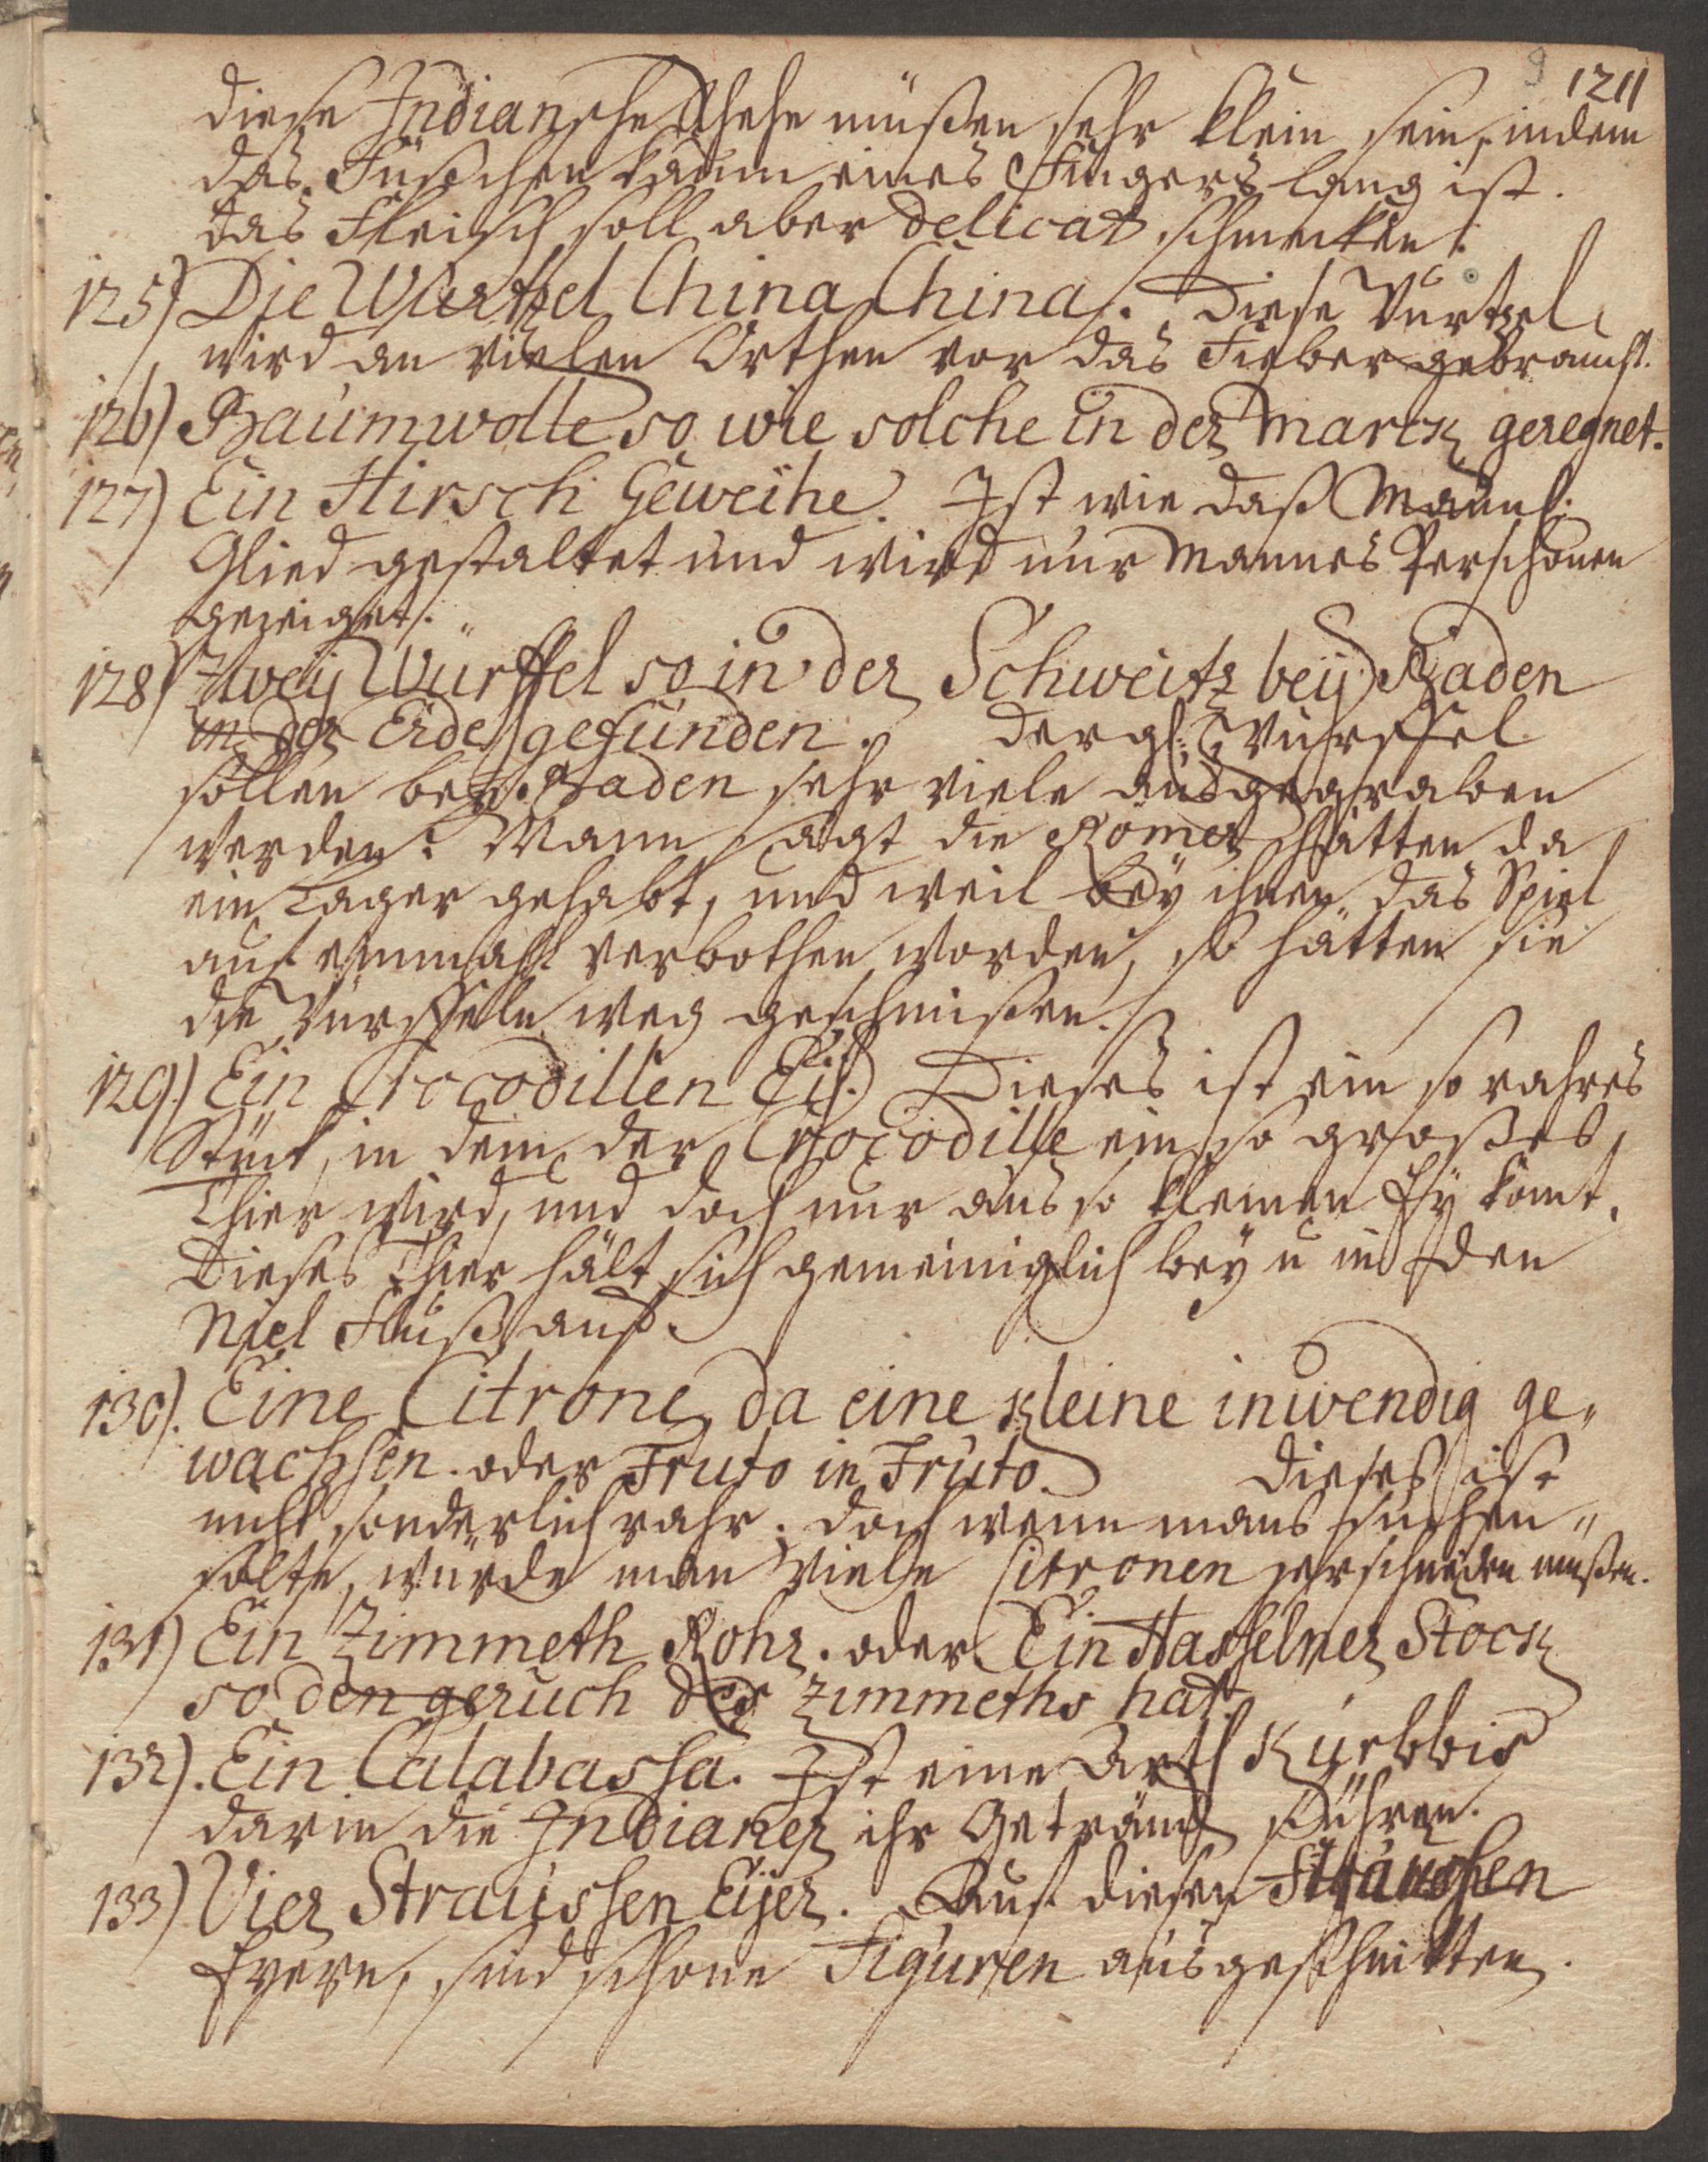 9 1211
diese Indiansche Rhehe müßen sehr klein sein, indem
das Füßchen kaum eines Fingers lang ist.
das Fleisch soll aber delicat schmecken.
125) Die Wurtzel China China. Diese Wurtzel
wird an vielen Orthen vor das Fieber gebraucht.
126) Baumwolle so wie solche in der Marck geregnet.
127) Ein Hirsch Geweihe. Ist wie daß Männl:
Glied gestaltet und wird nur Mannes Perschonen
gezeiget.
128) Zweÿ Würffel so in der Schweitz beÿ Baden
in der Erde gefunden. dergl: Würffel
sollen beÿ Baden sehr viele ausgegraben
werden: Mann sagt die Römer hätten da
ein Lager gehabt, und weil beÿ ihnen das Spiel
auf einmahl verbothen worden, so hätten sie
die Würffeln weg geschmißen.
129.) Ein Crocodillen Eÿ. Dieses ist ein so rahres
Stück, in dem der Crocodille ein so großes
Thier wird, und doch nur aus so kleinen Eÿ komt.
Dieses Thier hält sich gemeiniglich beÿ u in den
Niel Fluß auf.
130). Eine Citrone, da eine kleine inwendig ge„
wachssen. oder Fruto in Fruto. Dieses ist
nicht sonderlich rahr. doch wenn mans suchen„
solte, würde man viele Citronen zerschneiden mußen.
131) Ein Zimmeth Rohr. oder Ein Hasselner Stock
so den geruch des Zimmeths hat.
132). Ein Calabassa. Ist eine Arth Kürbbis
darin die Indianer ihr Getränck führen.
133) Vier Straussen Eÿer. Auf diesen Straussen
Eyern, sind schöne Figuren ausgeschnitten.